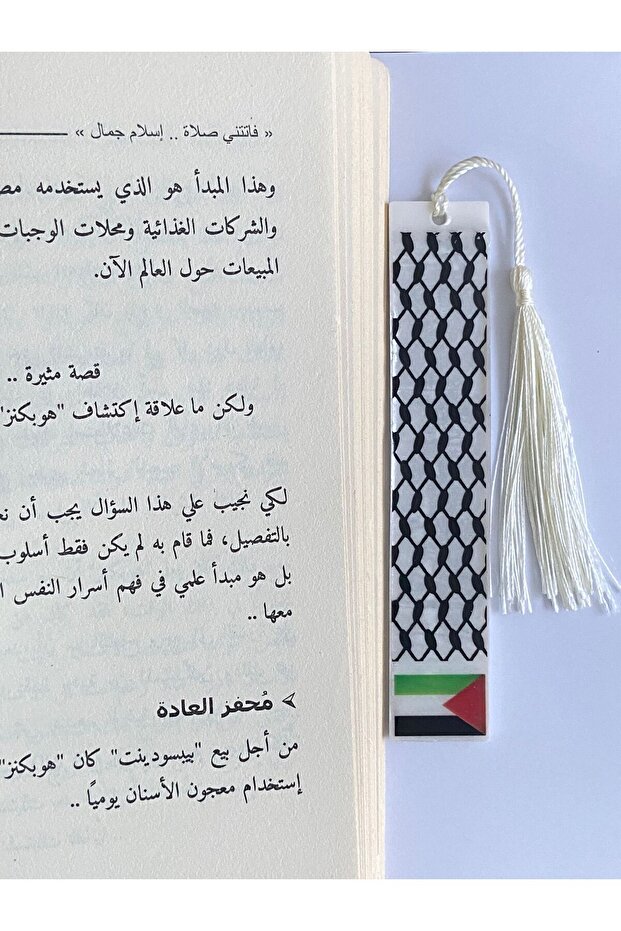 « فاتتني صلاة .. إسلام جمال »
وهذا المبدأ هو الذي يستخدمه
والشركات الغذائية ومحلات الوجبات
المبيعات حول العالم الآن.
قصة مثيرة ..
ولكن ما علاقة إكتشاف "هوبكنز"
لكي نجيب علي هذا السؤال يجب أن
بالتفصيل، فما قام به لم يكن فقط أسلوب
بل هو مبدأ علمي في فهم أسرار النفس
معها ..
مُحفز العادة
من أجل بيع "بيبسودينت" كان "هوبكنز"
إستخدام معجون الأسنان يومياً ..